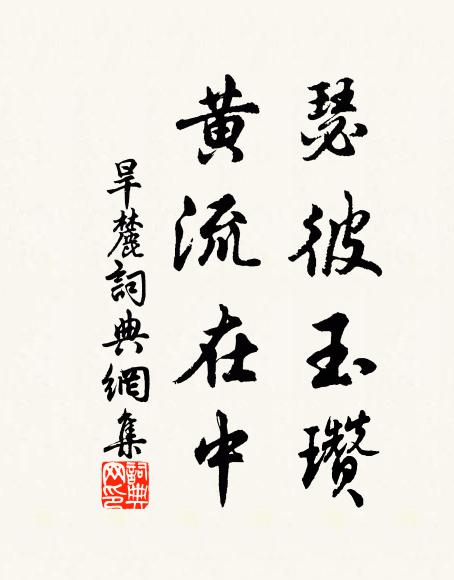 瑟彼玉瓚
黄流在中
旱麓詞典網集
詞典网印